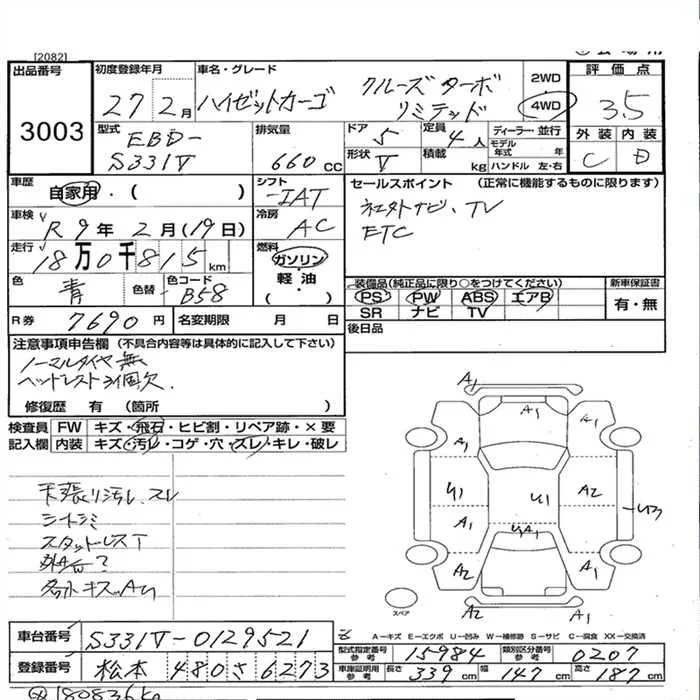 [2082]
出品番号
3003
初度登録年月
27 2月
車名・グレード
ハイゼットカーゴ
クルーズターボ
リミテッド
2WD
4WD
評価点
3.5
外装 内装
C D
型式
EBD-
S331V
排気量
660 cc
ドア 5
形状 V
定員 4人
積載 kg
ディーラー・並行
モデル年式 年
ハンドル 左・右
車歴
自家用・( )
シフト
IAT
セールスポイント (正常に機能するものに限ります)
社外ナビ、TV
ETC
車検
R9年 2月(19日)
冷房
AC
走行
18万0千815km
燃料
ガソリン・
軽・油・
( )
色
青
色替
色コード
B58
装備品(純正品に限り○をつけてください)
PS PW ABS エアB
SR ナビ TV
新車保証書
有・無
R券 7690円
名変期限 月 日
後日品
注意事項申告欄 (不具合内容等は具体的に記入して下さい)
ノーマルタイヤ無
ヘッドレスト3個欠.
修復歴 有 (箇所 )
検査員記入欄
FW キズ・飛石・ヒビ割・リペア跡・×要
内装 キズ・汚レ・コゲ・穴・スレ・キレ・破レ
天張り汚レ、スレ
シートシミ
スタッドレスT
各部キズ、AU
A1
A1
A1 A1
U1 U1 A2
U3
A1 A1
A2 A1
A2 A1
スペア
A−キズ E−エクボ U−凹み W−補修跡 S−サビ C−腐食 XX−交換済
車台番号 S331V-0129521
型式指定番号 参考 15984
類別区分番号 参考 0207
登録番号 松本 480さ6273
車庫証明用 参考 長さ 339cm 幅 147cm 高さ 187cm
180836km